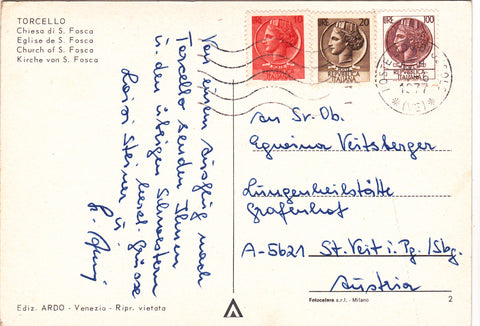 TORCELLO
Chiesa di S. Fosca
Eglise de S. Fosca
Church of S. Fosca
Kirche von S. Fosca
LIRE 10
LIRE 20
LIRE 100
REPVBBLICA
ITALIANA
REPVBBLICA
ITALIANA
1977
(VE)
Von einem Ausflug nach
Torcello senden Ihnen
u. den übrigen Schwestern
herzl. Grüsse
Loisi Steiner u.
An Sr. Ob.
Veitsberger
Lungenheilstätte
Grafenhof
A-5621 St. Veit i. Pg. / Sbg.
Austria
Ediz. ARDO - Venezia - Ripr. vietata
Fotocelere s.r.l. - Milano
2